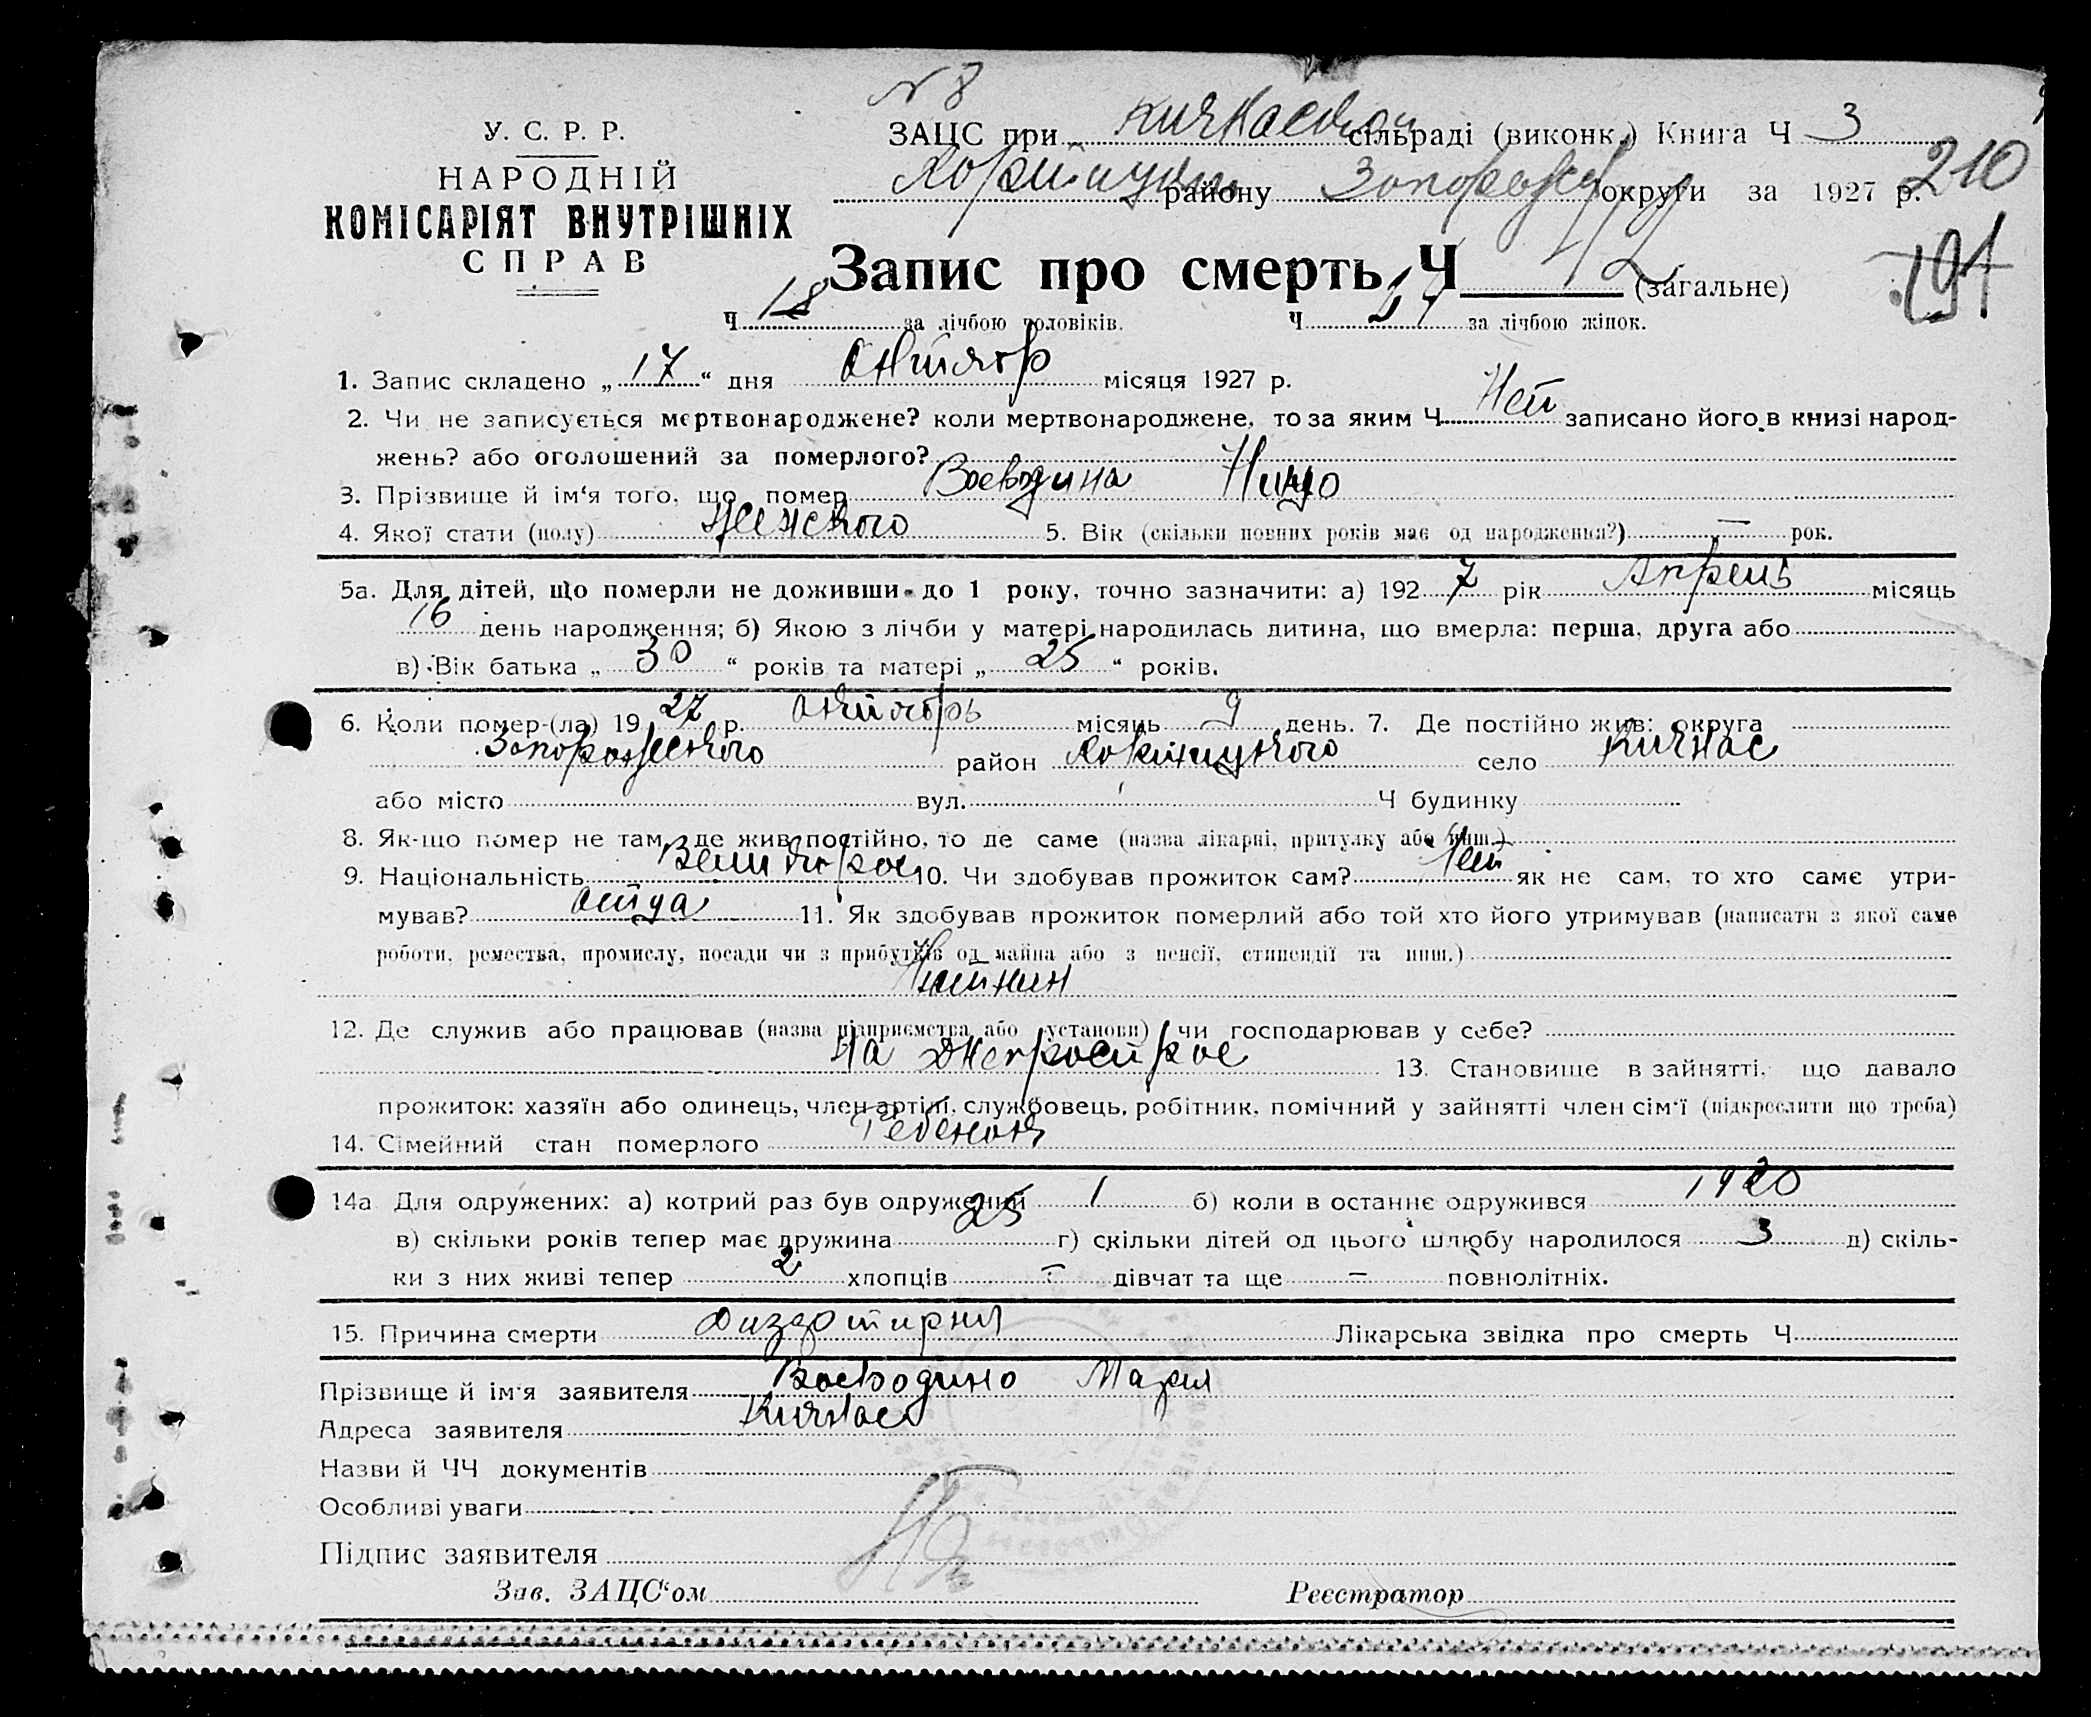 № 8
У. С. Р. Р.
НАРОДНІЙ
КОМІСАРІЯТ ВНУТРІШНІХ
СПРАВ
ЗАЦС при Кичкасской сільраді (виконк.) Книга Ч 3
району Запорожск округи за 1927 р. 210
Запис про смерть Ч 42 (загальне)
191
Ч 18 за лічбою чоловіків. Ч за лічбою жінок.
1. Запис складено „ 17 “ дня Октябр місяця 1927 р.
2. Чи не записується мертвонароджене? коли мертвонароджене, то за яким Ч Нет записано його в книзі народ-
жень? або оголошений за померлого?
3. Прізвище й ім‘я того, що помер Воеводина Нина
4. Якої стати (полу) Женского 5. Вік (скільки повних років має од народження?) — рок.
5а. Для дітей, що померли не доживши до 1 року, точно зазначити: а) 192 7 рік Апрель місяць
16 день народження; б) Якою з лічби у матері народилась дитина, що вмерла: перша, друга або
в) Вік батька „ 30 “ років та матері „ 25 “ років.
6. Коли помер-(ла) 19 27 р. Октибрь місяць 9 день. 7. Де постійно жив: округа
Запорожского район Хортицкого село Кичкас
або місто вул. Ч будинку
8. Як-що помер не там, де жив постійно, то де саме (назва лікарні, притулку або инш.)
9. Національність Великорос 10. Чи здобував прожиток сам? Нет як не сам, то хто саме утри-
мував? отца 11. Як здобував прожиток померлий або той хто його утримував (написати з якої саме
роботи, ремества, промислу, посади чи з прибутків од майна або з пенсії, стипендії та инш.)
12. Де служив або працював (назва підприємства або установи) чи господарював у себе?
На Днепрострое 13. Становище в зайнятті, що давало
прожиток: хазяїн або одинець, член артілі, службовець, робітник, помічний у зайнятті член сім‘ї (підкреслити що треба)
14. Сімейний стан померлого Ребенок
14а Для одружених: а) котрий раз був одружений 1 б) коли в останнє одружився 1920
в) скільки років тепер має дружина 25 г) скільки дітей од цього шлюбу народилося 3 д) скіль-
ки з них живі тепер 2 хлопців — дівчат та ще — повнолітніх.
15. Причина смерти Диззотирия Лікарська звідка про смерть Ч
Прізвище й ім‘я заявителя Воеводино Мария
Адреса заявителя Кичкас
Назви й ЧЧ документів
Особливі уваги
Підпис заявителя
Зав. ЗАЦС‘ом Реєстратор